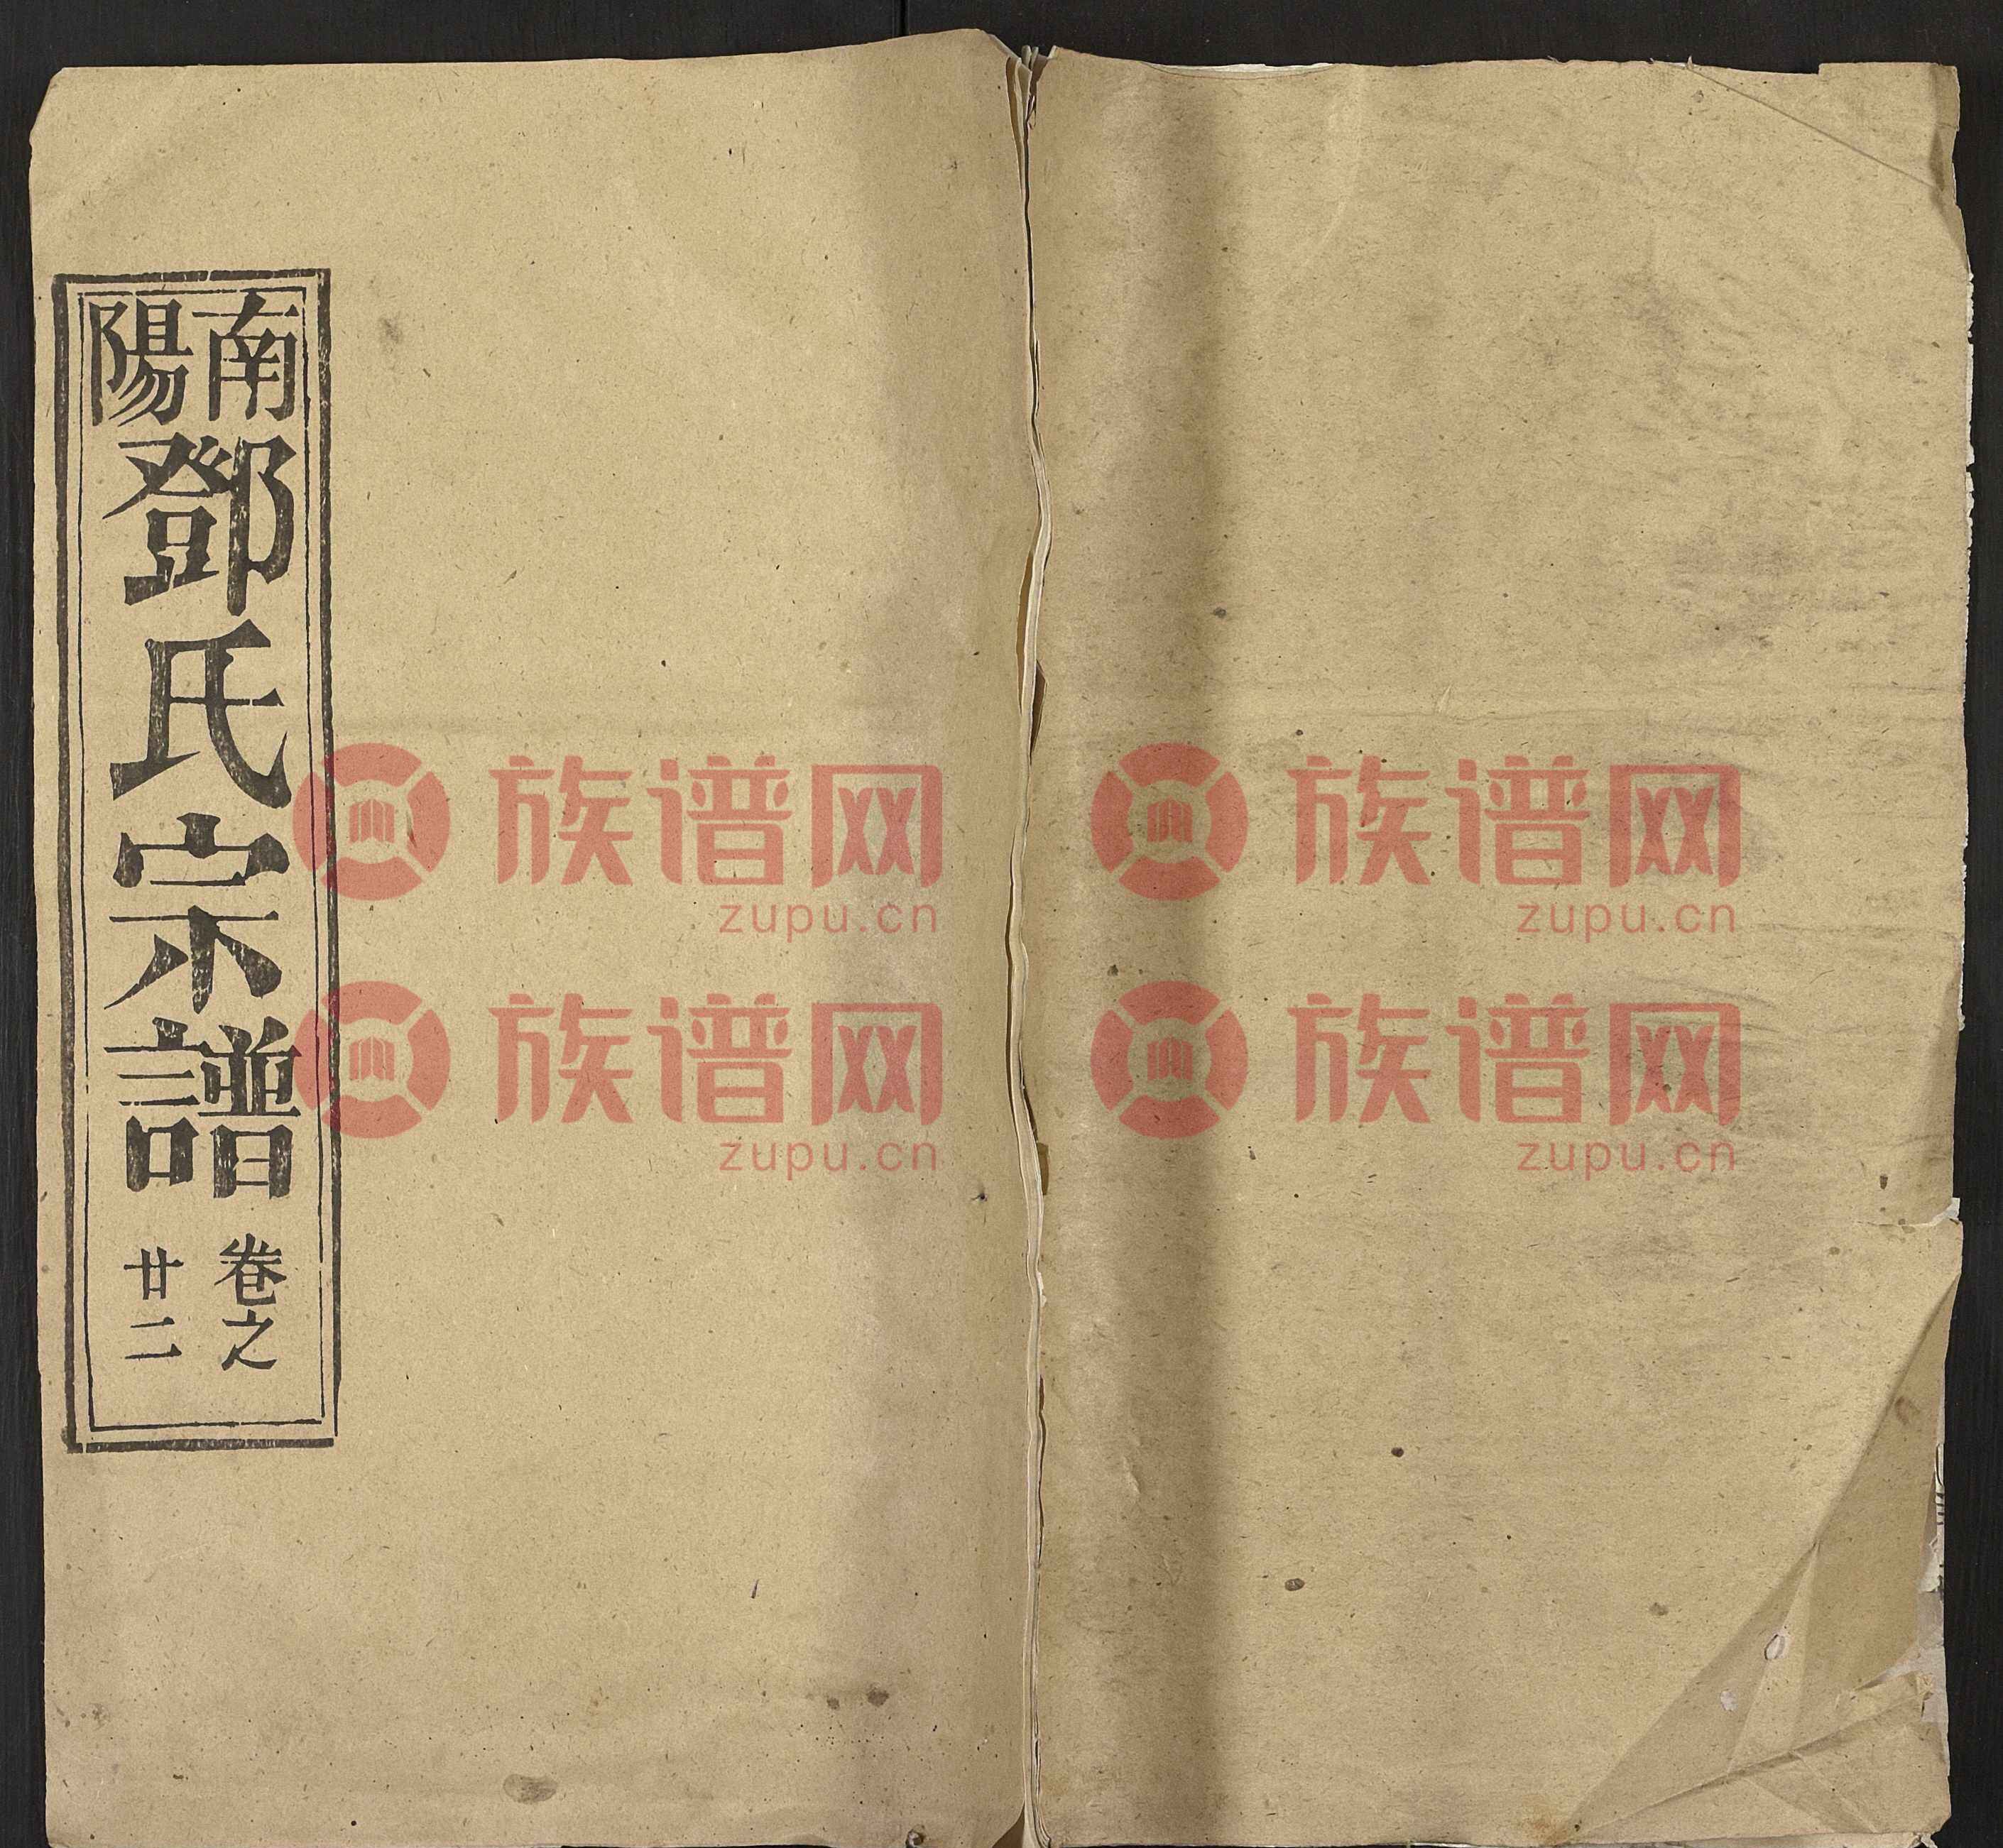 南陽鄧氏宗譜卷之廿二
族谱网
zupu.cn
族谱网
zupu.cn
族谱网
zupu.cn
族谱网
zupu.cn